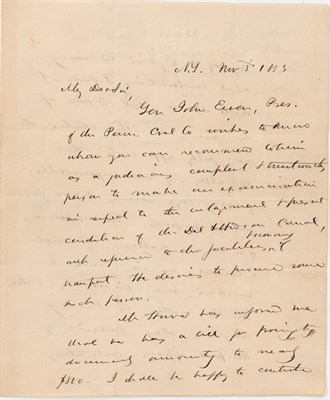 N.Y. Nov 5 1853
My Dear Sir,
Gen John Ewen, Pres.
of the Penn Coal Co wishes to know
whom you can recommend to him
as a judicious competent & trustworthy
person to make an examination
in respect to the enlargement & present
condition of the Del & Hudson Canal,
with reference to the facilities of
transport. He desires to procure some
such person.
Mr has informed me
that he has a bill for printing
documents amounting to nearly
I shall be happy to contribute